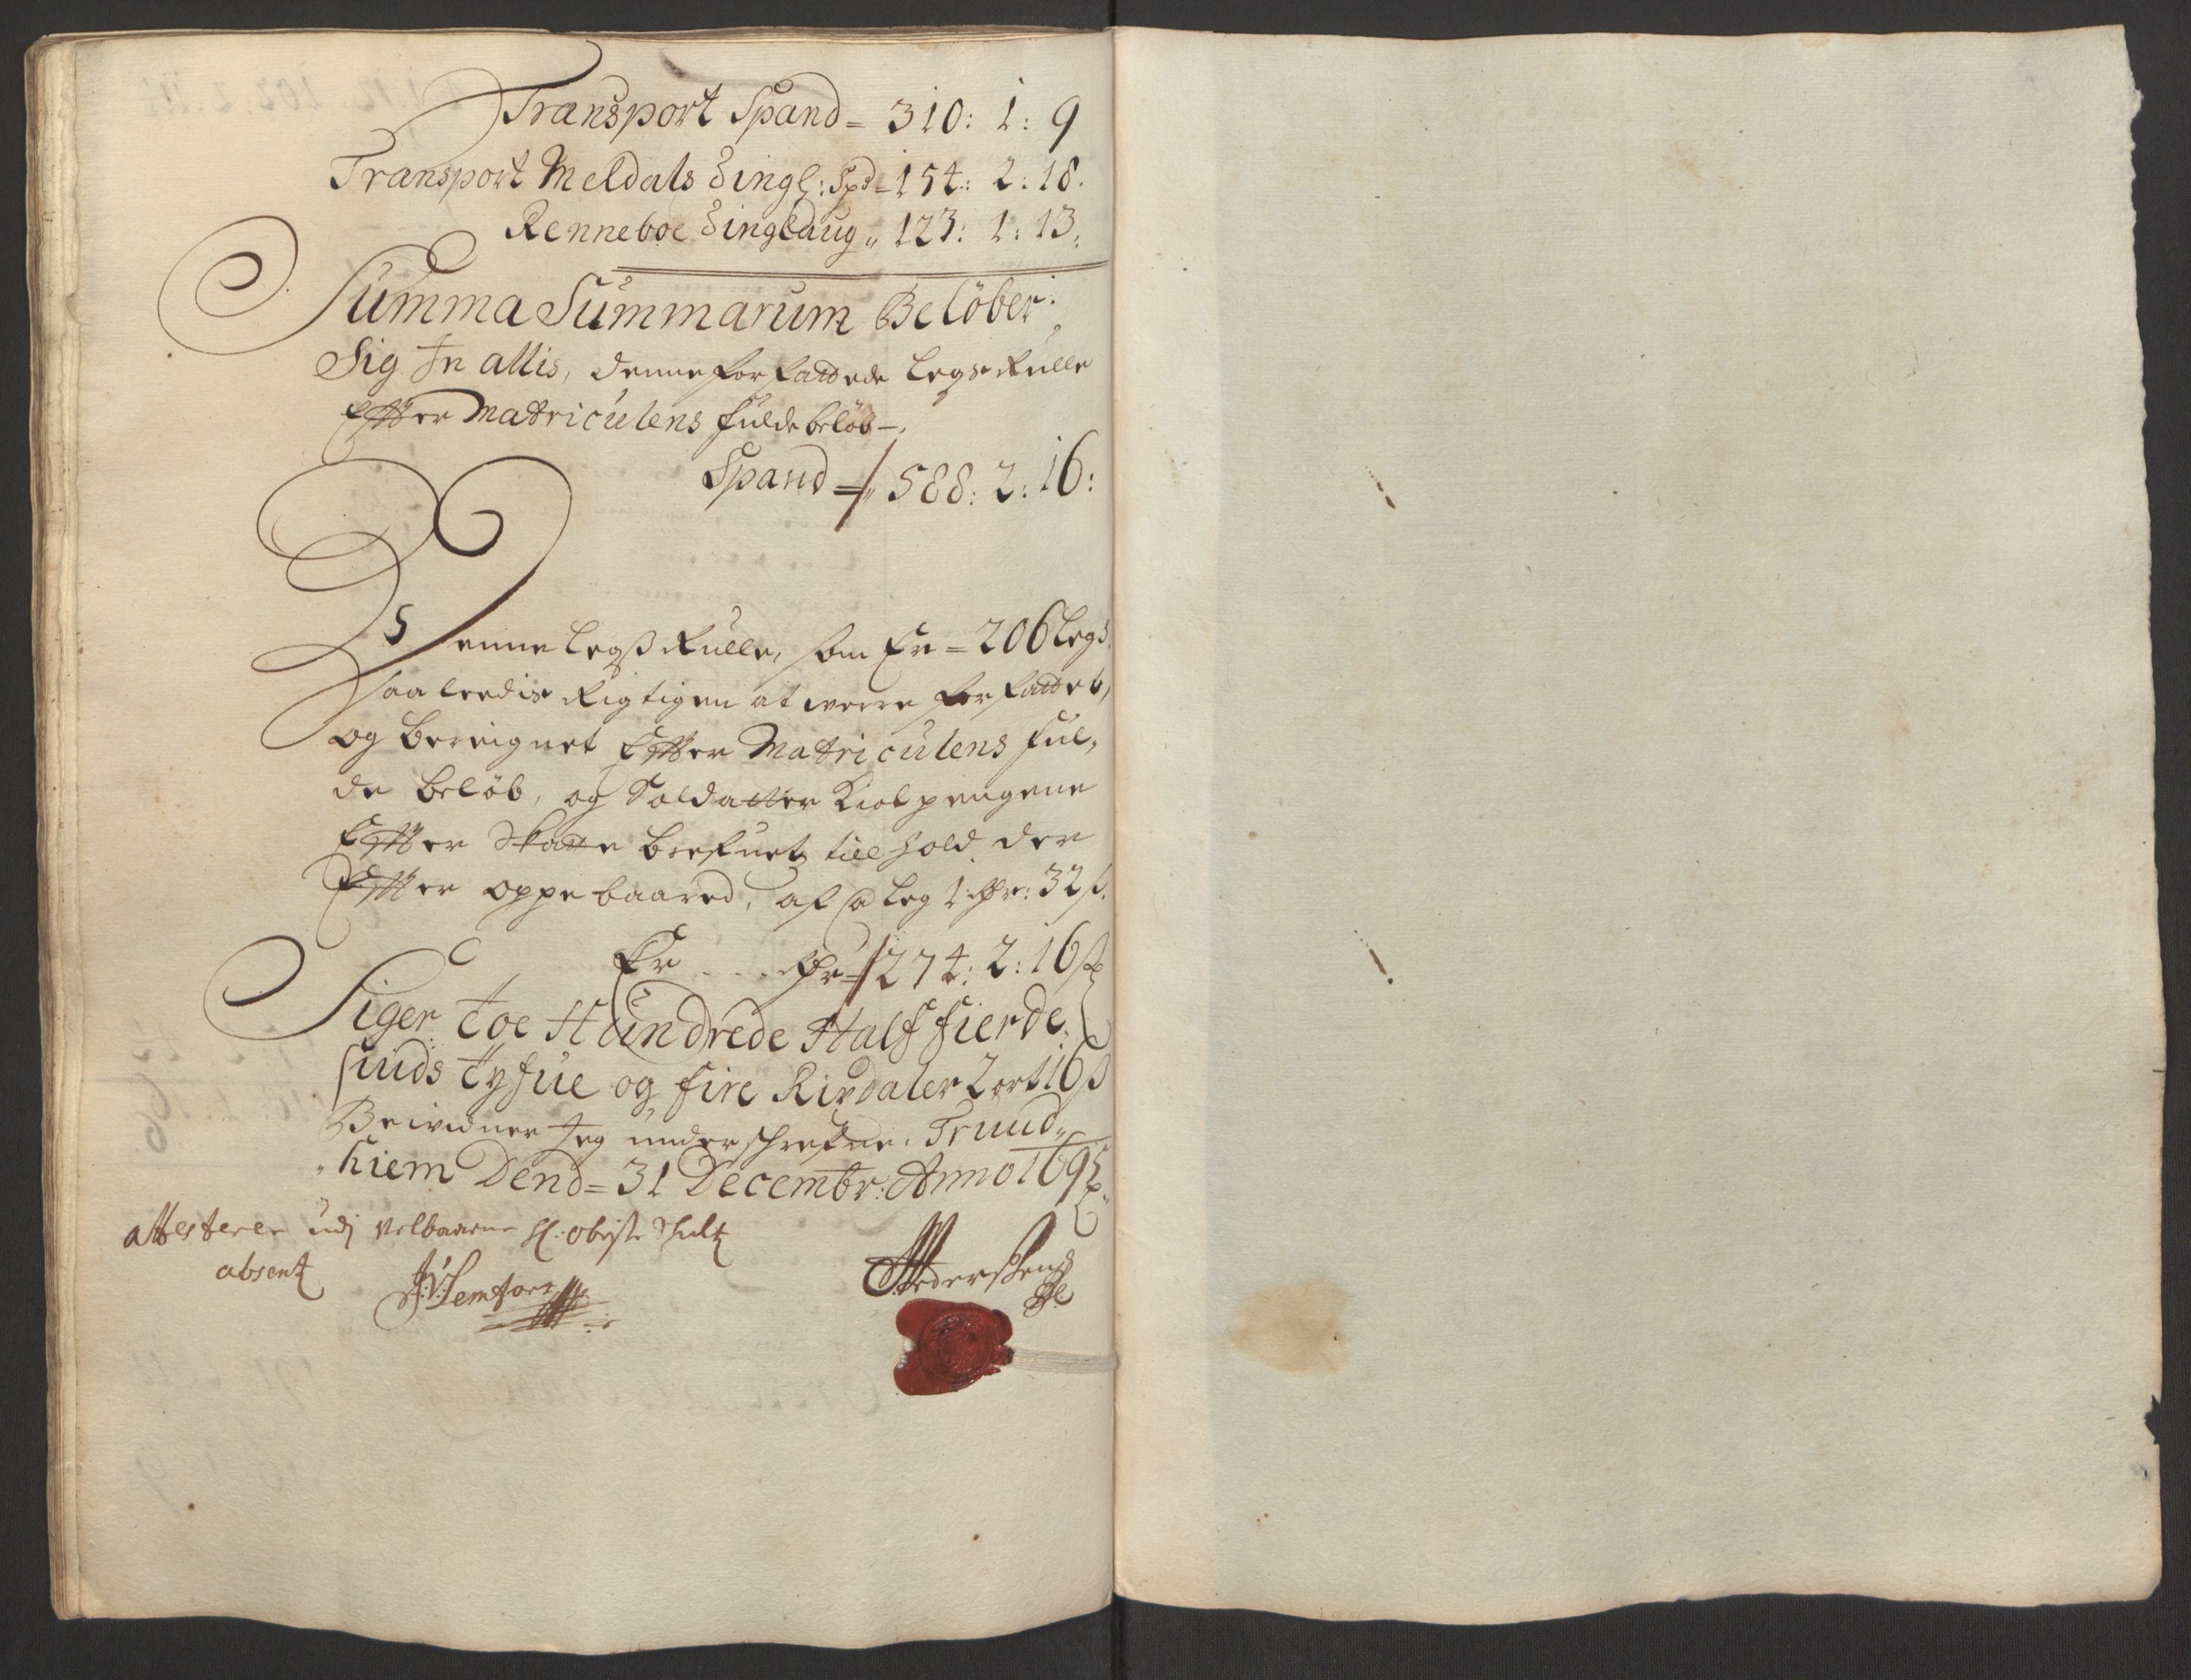 Transport Spand = 310: 1: 9
Transport Meldals Tingl: Spd = 154: 2: 18.
Renneboe Tinglaug „ 123: 1: 13,
Summa Summarum Belöber
Sig In allis, denne forfattede Legs Rulle
Effter Matriculens fulde beløb –
Spand =/„ 588: 2: 16:
Denne Legß Rulle, som Er = 206 Legd.
saaledis Rigtigen at werre forfattet,
og bereignet Effter Matriculens ful,
de beløb, og Soldatter Kiolpengene
Effter Skatte brefuets tillhold der
Effter oppebaared, af @ Leg 1 Rdr: 32 s.
Er . . . Rdr =/ 274: 2: 16 s
Siger Toe Hundrede Halffierde„
sinds Tyfue og fire Rixdaler 2 ort 16 s
Bewidner Jeg underschrefne, Trund„
„hiem Dend = 31 Decembr: Anno 1695
attesterer udj velbaarne H: Obriste Schults
absentz